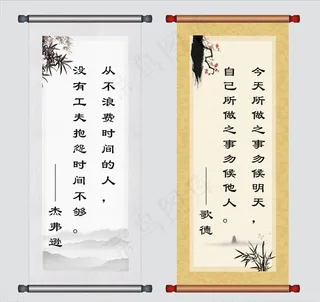 从不浪费时间的人，
没有工夫抱怨时间不够。
——杰弗逊
今天所做之事勿候明天，
自己所做之事勿候他人。
——歌德